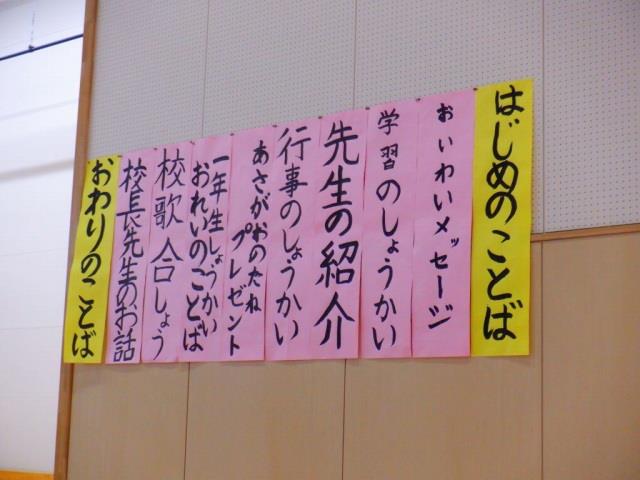 はじめのことば
おいわいメッセージ
学習のしょうかい
先生の紹介
行事のしょうかい
あさがおのたね
プレゼント
一年生しょうかい
おれいのことば
校歌合しょう
校長先生のお話
おわりのことば